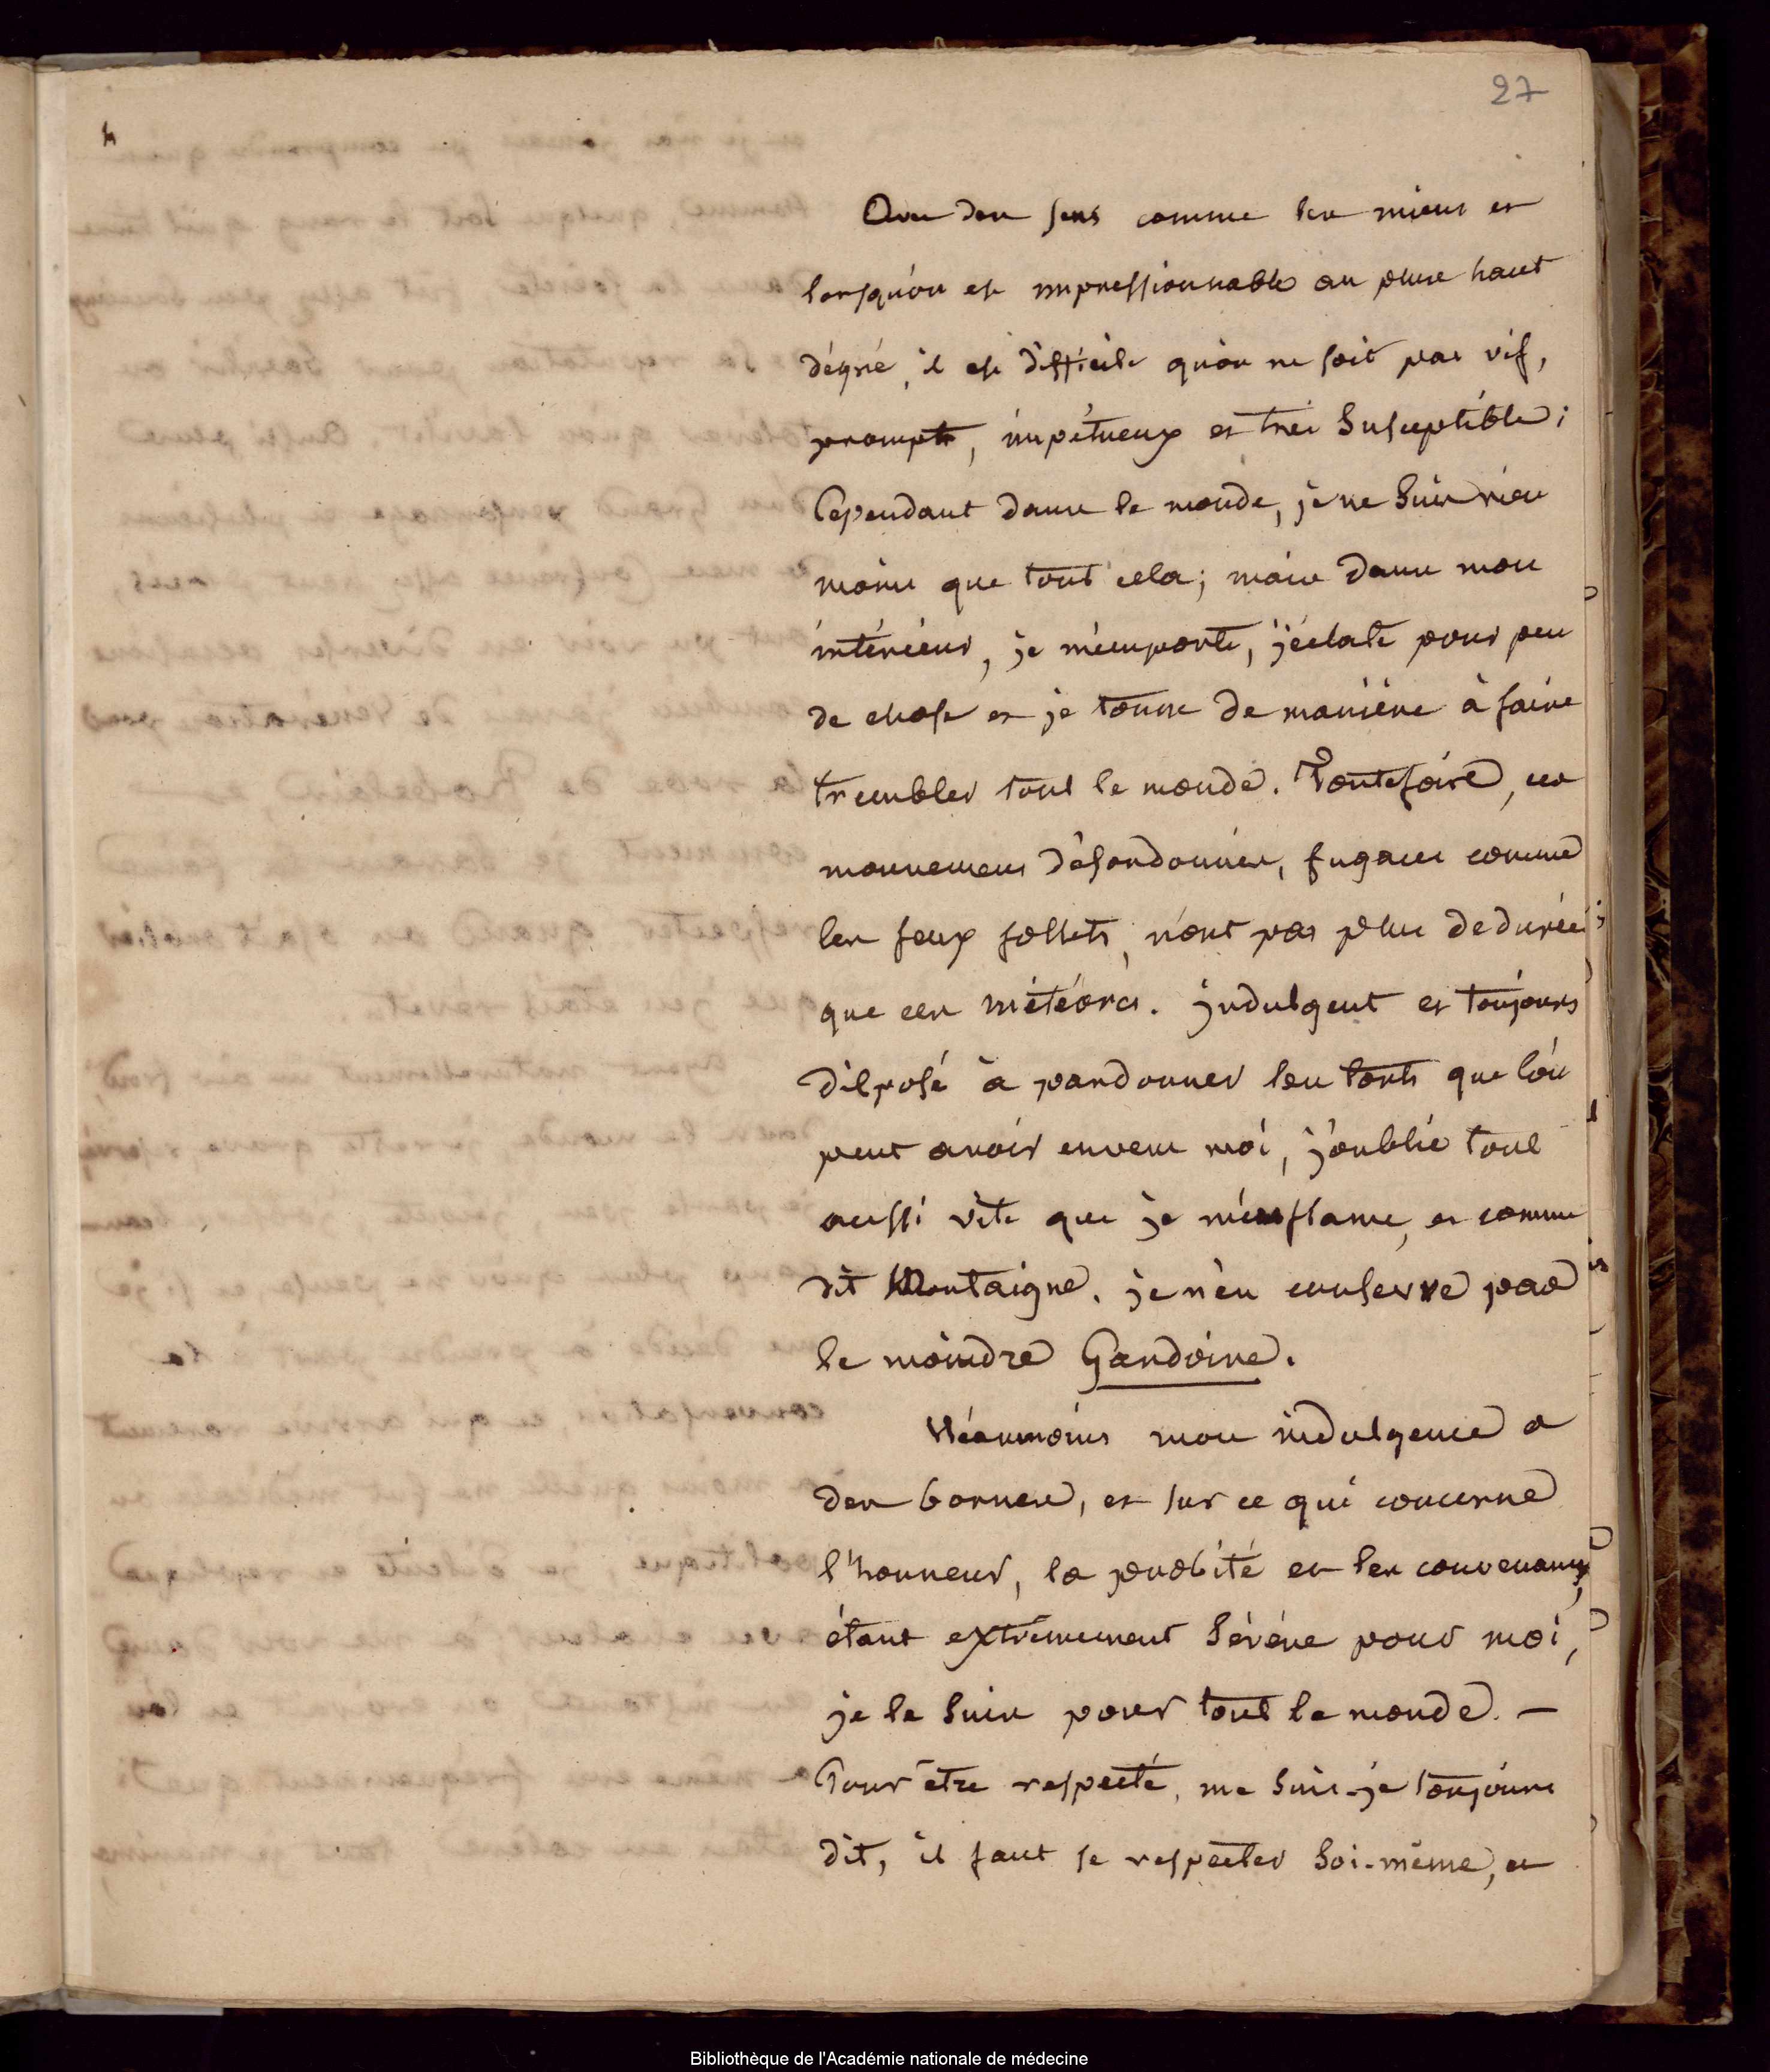 27
Avec des sens comme les miens et
lorsqu'on est impressionnable au plus haut
dégré, il est difficile qu'on ne soit pas vif,
prompt, impétueux et très susceptible;
Cependant dans le monde, je ne suis rien
moins que tout cela; mais dans mon
intérieur, je m'emporte, j'éclate pour peu
de chose et je tonne de manière à faire
trembler tout le monde. Toutefois, ces
mouvemens désordonnés, fugaces comme
les feux follets, n'ont pas plus de durée
que ces météores. indulgent et toujours
disposé à pardonner les torts que l'on
peut avoir envers moi, j'oublie tout
aussi vite que je m'enflame, et comme
dit Montaigne. je n'en conserve pas
le moindre Gardoire.
Néanmoins mon indulgence a
des bornes, et sur ce qui concerne
l'honneur, la probité et les convenances,
étant extrêmement sévère pour moi,
je le suis pour tout le monde. —
Pour être respecté, me suis-je toujours
dit, il faut se respecter soi-même, et
Bibliothèque de l'Académie nationale de médecine